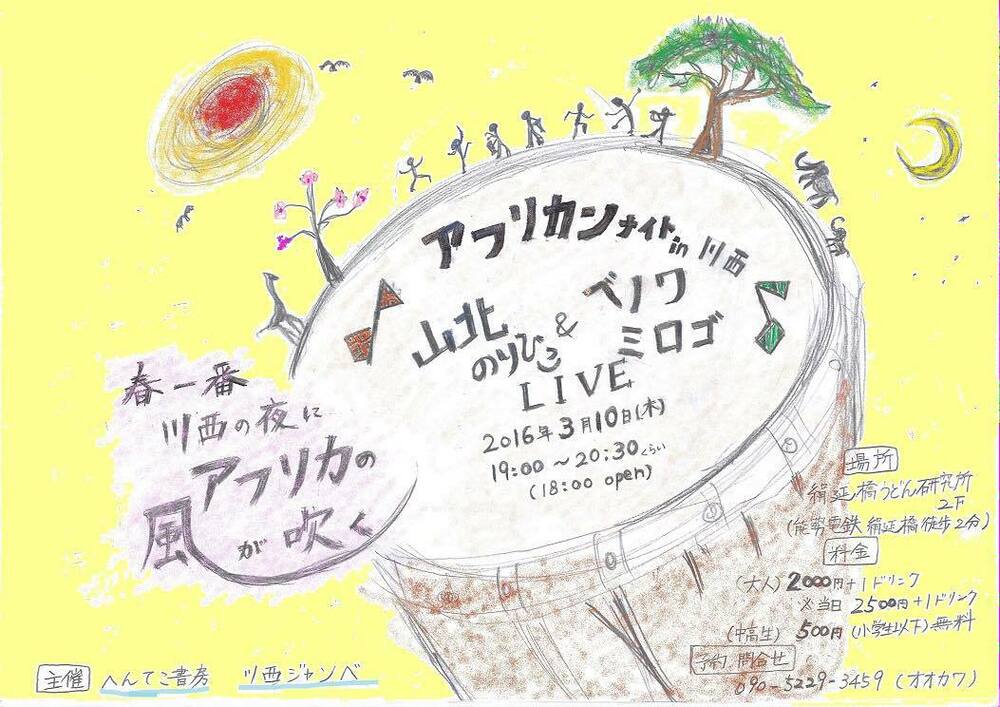 アフリカンナイト in 川西
山北のりひこ & ベノワミロゴ
LIVE
2016年3月10日(木)
19:00～20:30くらい
(18:00 open)
春一番
川西の夜に
アフリカの
風が吹く
場所
絹延橋うどん研究所
2F
(能勢電鉄 絹延橋 徒歩2分)
料金
(大人) 2000円+1ドリンク
※当日 2500円+1ドリンク
(中高生) 500円 (小学生以下)無料
予約、問合せ
090-5229-3459 (オオカワ)
主催 へんてこ書房 川西ジャンベ